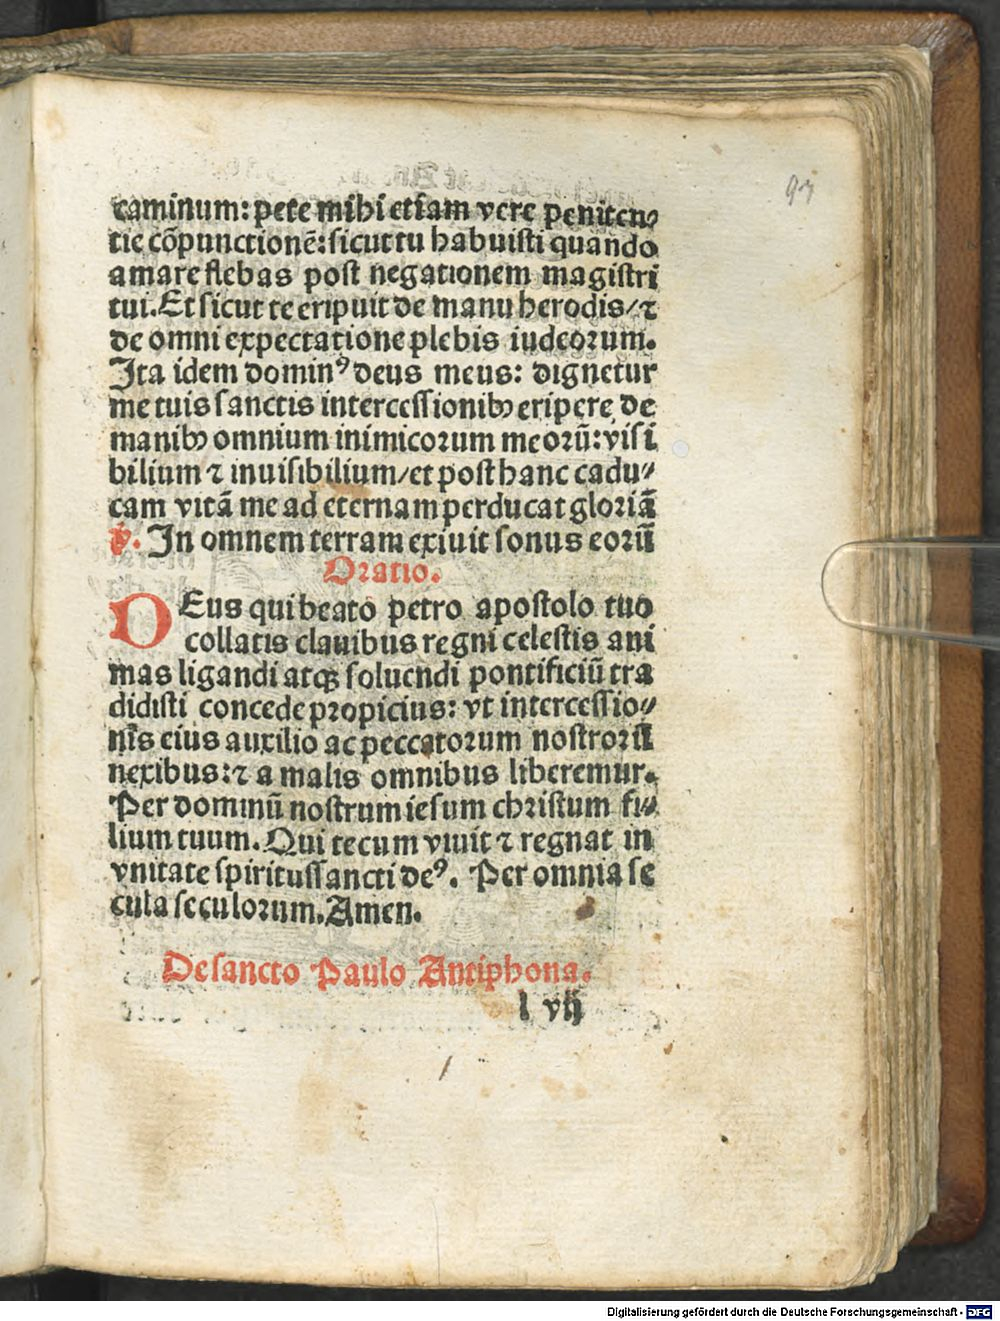 97
caminum: pete mihi etiam vere peniten⸗
tie cōpunctionē: sicut tu habuisti quando
amare flebas post negationem magistri
tui. Et sicut te eripuit de manu herodis/ ⁊
de omni expectatione plebis iudeorum.
Ita idem dominꝰ deus meus: dignetur
me tuis sanctis intercessionibꝫ eripere de
manibꝫ omnium inimicorum meorū: visi
bilium ⁊ inuisibilium/ et post hanc cadu⸗
cam vitā me ad eternam perducat gloriā
℣. In omnem terram exiuit sonus eorū
Oratio.
DEus qui beato petro apostolo tuo
collatis clauibus regni celestis ani
mas ligandi atqꝫ soluendi pontificiū tra
didisti concede propicius: vt intercessio⸗
nis eius auxilio ac peccatorum nostrorū
nexibus: ⁊ a malis omnibus liberemur.
Per dominū nostrum iesum christum fi⸗
lium tuum. Qui tecum viuit ⁊ regnat in
vnitate spiritussancti deꝰ. Per omnia se
cula seculorum. Amen.
De sancto Paulo Antiphona.
l vij
Digitalisierung gefördert durch die Deutsche Forschungsgemeinschaft - DFG